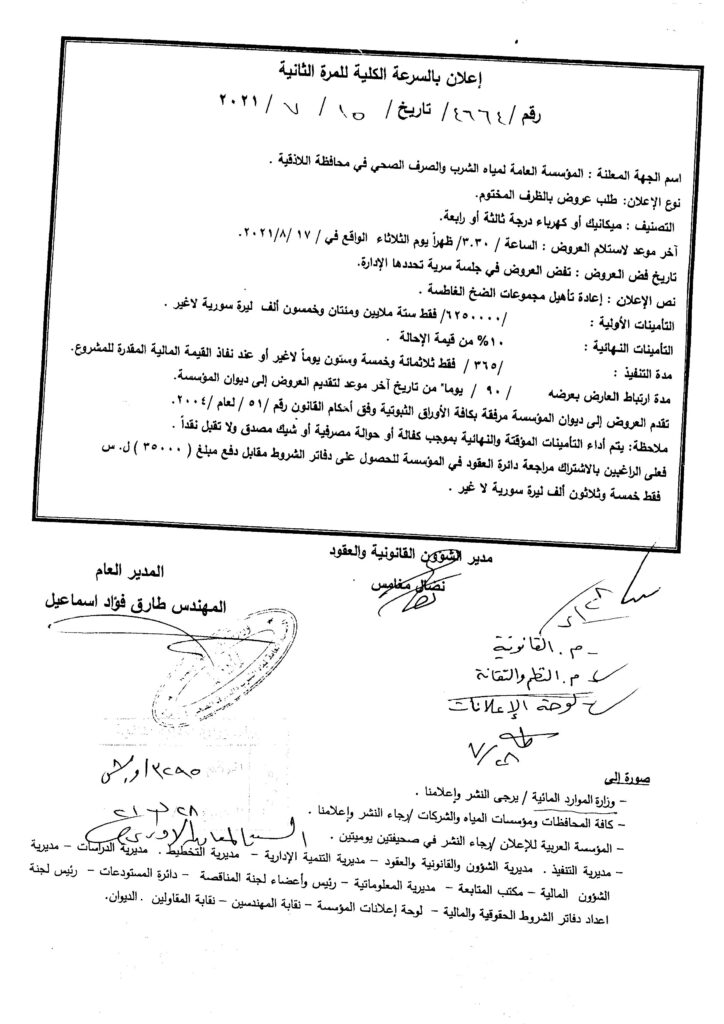 إعلان بالسرعة الكلية للمرة الثانية
رقم /٤٦٦٤/ تاريخ / ١٥ / ٧ / ٢٠٢١
اسم الجهة المعلنة : المؤسسة العامة لمياه الشرب والصرف الصحي في محافظة اللاذقية .
نوع الإعلان: طلب عروض بالظرف المختوم.
التصنيف : ميكانيك أو كهرباء درجة ثالثة أو رابعة.
آخر موعد لاستلام العروض : الساعة / ٣.٣٠/ ظهراً يوم الثلاثاء الواقع في / ١٧ /٢٠٢١/٨.
تاريخ فض العروض : تفض العروض في جلسة سرية تحددها الإدارة.
نص الإعلان : إعادة تأهيل مجموعات الضخ الغاطسة .
التأمينات الأولية : /٦٢٥٠٠٠٠/ فقط ستة ملايين ومئتان وخمسون ألف ليرة سورية لاغير .
التأمينات النهائية : ١٠% من قيمة الإحالة .
مدة التنفيذ : /٣٦٥ / فقط ثلاثمائة وخمسة وستون يوماً لاغير أو عند نفاذ القيمة المالية المقدرة للمشروع.
مدة ارتباط العارض بعرضه / ٩٠ / يوماً من تاريخ آخر موعد لتقديم العروض إلى ديوان المؤسسة.
تقدم العروض إلى ديوان المؤسسة مرفقة بكافة الأوراق الثبوتية وفق أحكام القانون رقم /٥١/ لعام /٢٠٠٤.
ملاحظة: يتم أداء التأمينات المؤقتة والنهائية بموجب كفالة أو حوالة مصرفية أو شيك مصدق ولا تقبل نقداً .
فعلى الراغبين بالاشتراك مراجعة دائرة العقود في المؤسسة للحصول على دفاتر الشروط مقابل دفع مبلغ ( ٣٥٠٠٠ ) ل. س
فقط خمسة وثلاثون ألف ليرة سورية لا غير .
مدير الشؤون القانونية والعقود
نضال مغامس
المدير العام
المهندس طارق فؤاد اسماعيل
- م. القانونية
م. النظم والتقانة
لوحة الإعلانات
٧/٢٨
صورة إلى
– وزارة الموارد المائية / يرجى النشر وإعلامنا .
– كافة المحافظات ومؤسسات المياه والشركات / رجاء النشر وإعلامنا .
– المؤسسة العربية للإعلان /رجاء النشر في صحيفتين يوميتين .
– مديرية التنفيذ . مديرية الشؤون والقانونية والعقود – مديرية التنمية الإدارية – مديرية التخطيط . مديرية الدراسات – مديرية
الشؤون المالية – مكتب المتابعة – مديرية المعلوماتية – رئيس وأعضاء لجنة المناقصة – دائرة المستودعات – رئيس لجنة
اعداد دفاتر الشروط الحقوقية والمالية – لوحة إعلانات المؤسسة – نقابة المهندسين – نقابة المقاولين . الديوان.